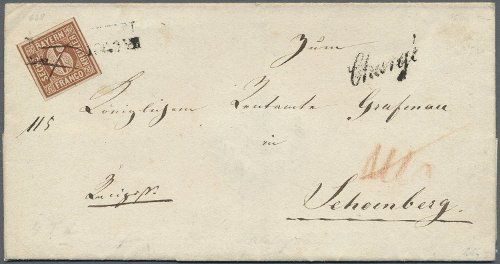 BAYERN
SECHS KREUZER
FRANCO
Zum
Chargé
Königlichem Rentamte Grafenau
115
in
Schoenberg.